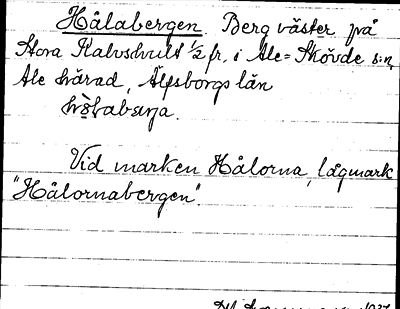 Hålabergen Berg väster på
Stora Kalvshult 1/2 fr. i Ale-Skövde s:n,
Ale härad, Älfsborgs län

Vid marken Hålorna, lågmark
"Hålornabergen".
1927